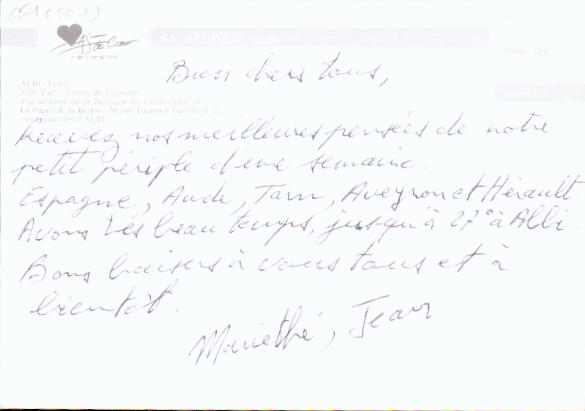 Bien chers tous,
ALBI (Tarn)
Ville d'art - Centre de Tourisme
Vue aérienne sur la Basilique Ste Cécile (XIIIe s)
Le Palais de la Berbie - Musée Toulouse Lautrec et les
Recevez nos meilleures pensées de notre
petit périple d'une semaine.
Espagne, Aude, Tarn, Aveyron et Hérault.
Avons très beau temps, jusqu'à 27° à Albi.
Bons baisers à vous tous et à
bientôt.
Mariethé, Jean